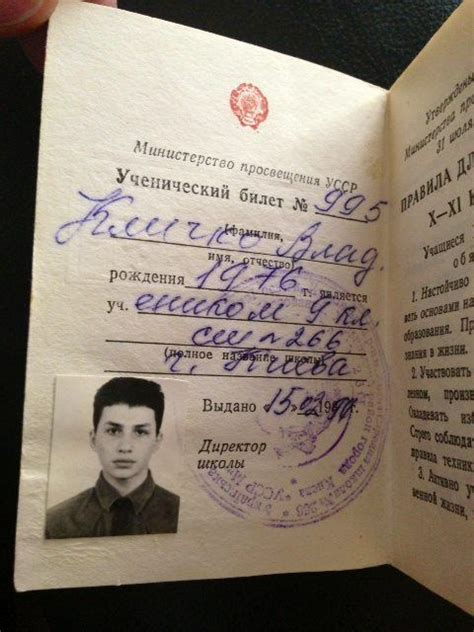 Министерство просвещения УССР
Ученический билет № 995
Кличко Влад.
(фамилия,
имя, отчество)
рождения 1976 г. является
уч. еником 9 кл.
сш № 266
(полное название школы)
г. Киева
Выдано «15» 1990
Директор
школы
Министерства
31 июля
ПРАВИЛА ДЛ
X—XI К
Учащиеся
обя
1. Настойчиво
вать основами
образования.
знания в жизни.
2. Участвовать
лезном, произ
Овладевать
Строго соблюда
правила техник
3. Активно у
венной жизни,